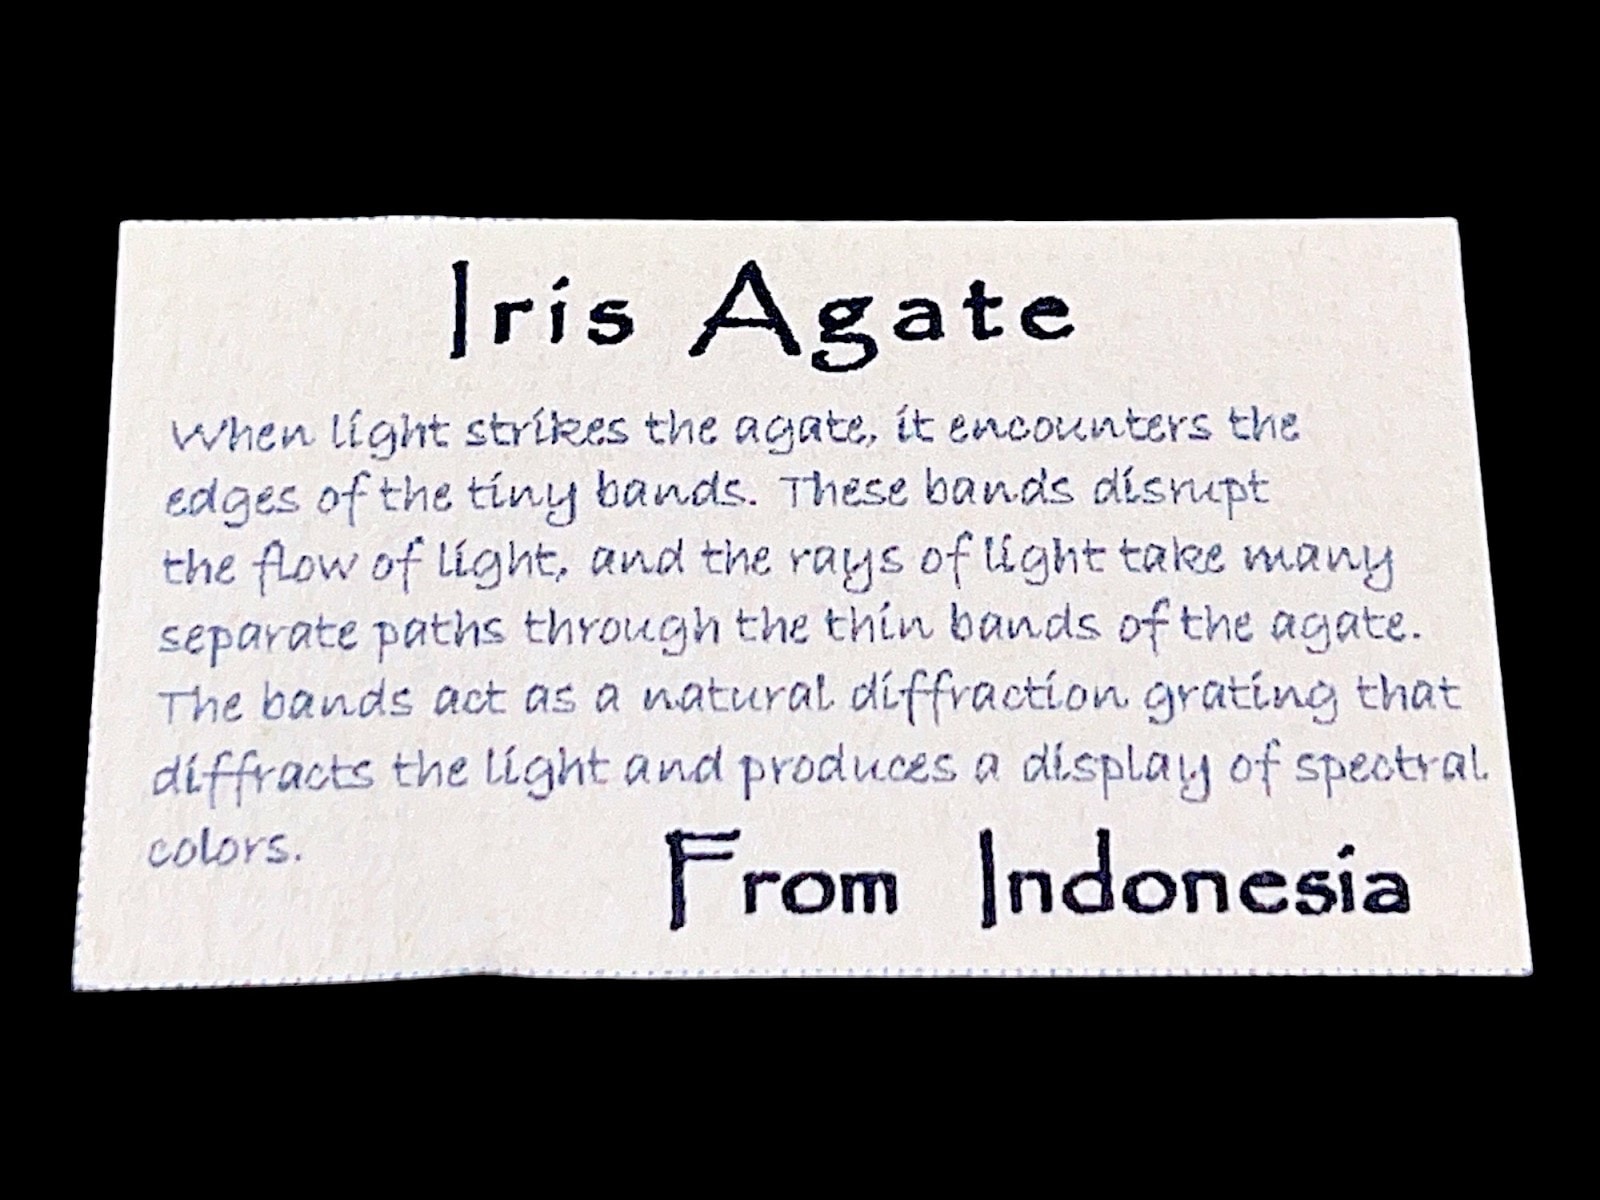 Iris Agate
When light strikes the agate, it encounters the
edges of the tiny bands. These bands disrupt
the flow of light, and the rays of light take many
separate paths through the thin bands of the agate.
The bands act as a natural diffraction grating that
diffracts the light and produces a display of spectral
colors.
From Indonesia